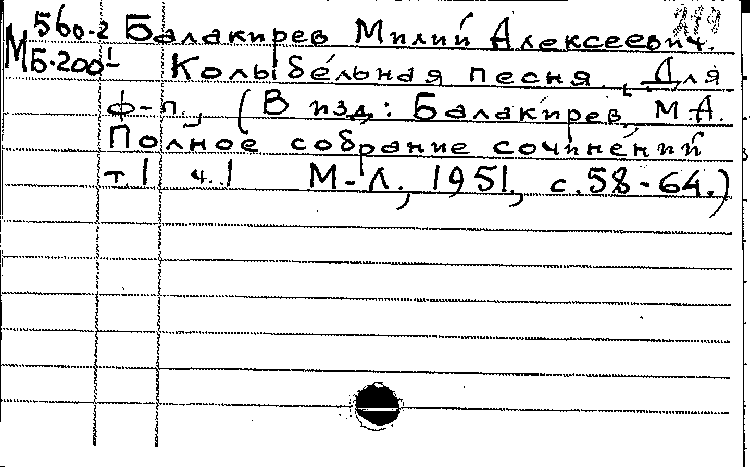 М 560-2 Балакирев Милий Алексеевич.
Б-200 I Колыбельная песня. Для
ф-п., (В изд.: Балакирев, М.А.
Полное собрание сочинений
т.1 ч.1 М-Л., 1951, с.58-64.)